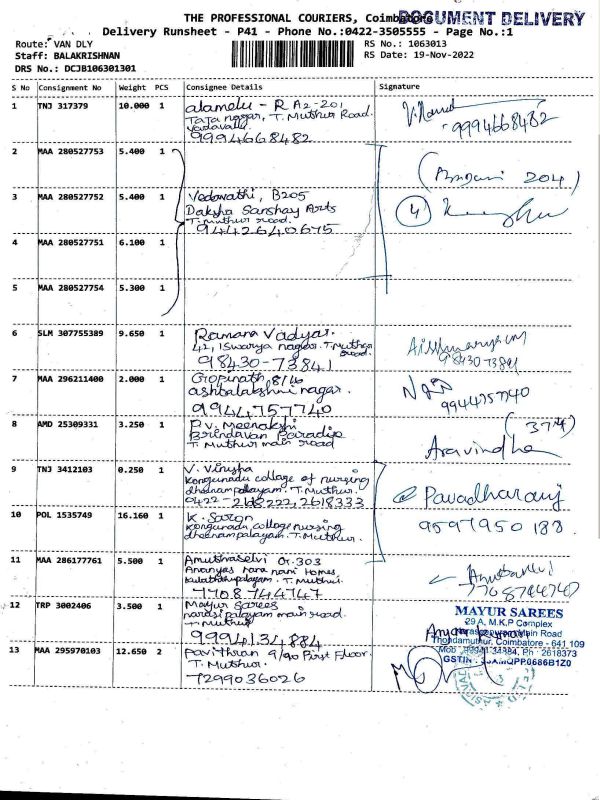 DOCUMENT DELIVERY
THE PROFESSIONAL COURIERS, Coimbatore
Delivery Runsheet - P41 - Phone No.:0422-3505555 - Page No.:1
Route: VAN DLY
RS No.: 1063013
Staff: BALAKRISHNAN
RS Date: 19-Nov-2022
DRS No.: DCJB106301301
S No Consignment No Weight PCS Consignee Details Signature
1 TNJ 317379 10.000 1 alamelu - R A2-201
Taja nagar, T. Muthur Road.
Vadavalli
9994668482
9994668482
2 MAA 280527753 5.400 1
204)
3 MAA 280527752 5.400 1 Vedavathi, B205
Daksha Sanshay Arts
T. Muthur road.
9442640675
4
4 MAA 280527751 6.100 1
5 MAA 280527754 5.300 1
6 SLM 307755389 9.650 1 Ramana Vadyar.
42, Iswarya nagar. T. Muthur
road.
98430-73841
98430 73841
7 MAA 296211400 2.000 1 Gopinath, 8/46
ashtalakshmi nagar.
9944757740
9944757740
8 AMD 25309331 3.250 1 P.V. Meenakshi
Brindavan Paradise
T. Muthur main road
(374)
Aravindha
9 TNJ 3412103 0.250 1 V. Vinusha
Kongunadu collage of nursing
dheenampalayam. T. Muthur.
0422-2618222, 2618333
Pavadharani
10 POL 1535749 16.160 1 K. Saron
Kongunadu, college nursing
dheenampalayam. T. Muthur.
9597950188
11 MAA 286177761 5.500 1 Amuthaselvi G.303
Ananyas nana nani homes
Kalaththupalayam. T. Muthur.
7708744747
7708744747
12 TRP 3002406 3.500 1 Mayur Sarees
narasipalayam main road.
T. Muthur
9994134884
MAYUR SAREES
29 A, M.K.P Complex
Main Road
Thondamuthur, Coimbatore - 641 109
Ph : 2618373
13 MAA 295970103 12.650 2 Pavithran 9/90 First Floor.
T. Muthur.
7299036026